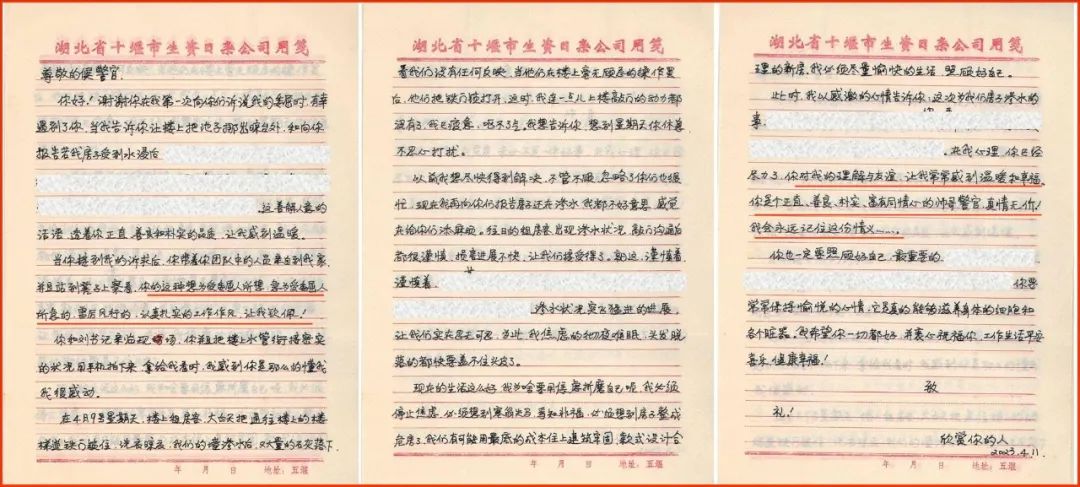 湖北省十堰市生资日杂公司用笺
尊敬的侯警官：
你好！谢谢你在我第一次向你们诉说我的委屈时，有幸
遇到了你，当我告诉你让楼上把池子挪出缺位外，和向你
报告若我房子受到水浸泡
这善解人意的
话语，透着你正直、善良和朴实的品质，让我感到温暖。
当你接到我的诉求后，你带着你团队中的人员来到我家，
并且站到凳子上察看，你的这种想为受委屈人所想，急为受委屈人
所急的，雷厉风行的，认真扎实的工作作风，让我钦佩！
你和刘书记来治现场，你亲把楼上水管衔接密实
的状况用手机拍下来，拿给我看时，我感到你是那么的懂我
我很感动。
在4月9号星期天，楼上租房客，大白天把通往楼上的楼
梯道铁门锁住，说有晾衣，我们的墙渗水后，又大量的石灰落下，
年 月 日 地址：五堰
湖北省十堰市生资日杂公司用笺
看我们没有任何反映，当他们在楼上毫无顾忌的操作里
后，他们把铁门锁打开，这时，我连一点儿上楼敲门的动力都
没有了，我已疲惫，吃不了点，我想告诉你，想到星期天你休息，
不忍心打扰。
以前我想尽快得到解决，不管不顾，忽略了你们也很
忙，现在我再向你们报告房子还在渗水，我都不好意思，感觉
在给你们添麻烦。往日的租房客，出现渗水状况，敲门沟通后
都很谨慎，损害进展不快，让我们接受得了，韩这，谨慎着，
谨慎着，
渗水状况突飞猛进的进展，
让我们实在忍无可忍，为此，我焦虑的彻夜难眠，头发脱
落的都快要盖不住头皮了。
现在的生活这么好，我为啥要用焦虑折磨自己呢，我必须
停止焦虑，必须想到塞翁失马，焉知非福，必须想到房子整成
危房了，我们有可能用最底的成本往上建筑牢固，款式设计合
年 月 日 地址：五堰
湖北省十堰市生资日杂公司用笺
理的新房，我必须尽量愉快的生活，照顾好自己。
此时，我以感激的心情告诉你，这次为我们房子渗水的
事，
在我心理，你已经
尽力了，你对我的理解与友谊，让我常常感到温暖和幸福，
你是个正直、善良、朴实、富有同情心的帅哥警官，真情无价！
我会永远记住这份情义……。
你也一定要照顾好自己，最重要的
你要
常常保持愉悦的心情，它是真的能够滋养身体的细胞和
各脏器。我希望你一切都好，并衷心祝福你，工作生活平安
喜乐，健康幸福！
致
礼！
欣赏你的人
2023.4.11.
年 月 日 地址：五堰